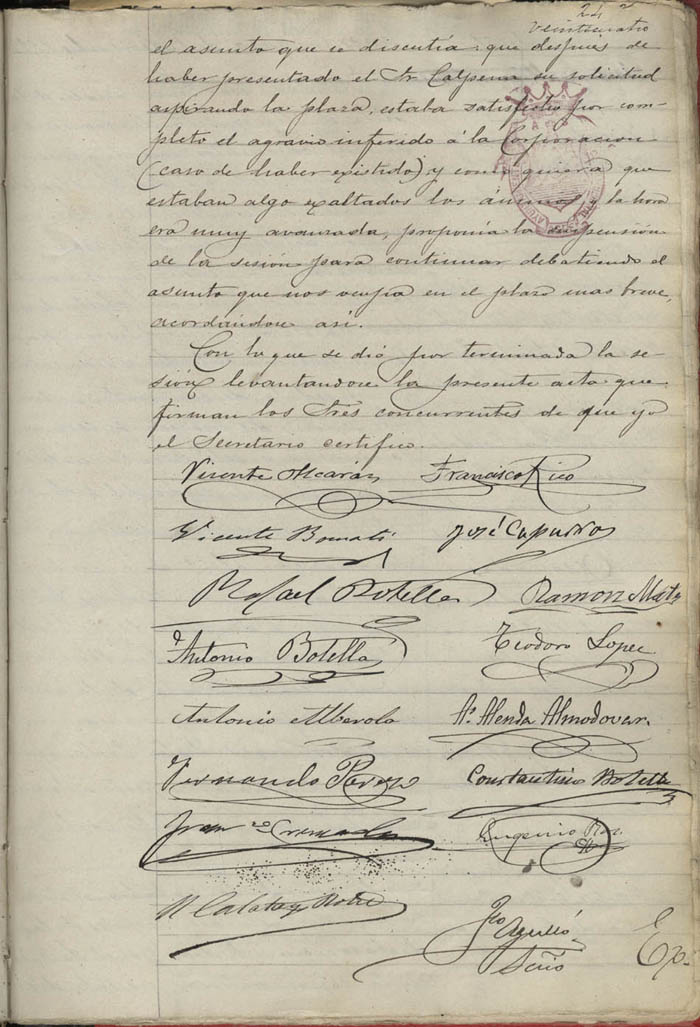 24
Veinticuatro
el asunto que se discutía: que después de
haber presentado el Sr Calpena su solicitud
aspirando la plaza, estaba satisfecho por com-
pleto el agravio inferido á la Corporacion
(caso de haber existido) y como quiera que
estaban algo exaltados los ánimos y la hora
era muy avanzada, proponía la suspensión
de la sesión para continuar debatiendo el
asunto que nos ocupa en el plazo mas breve,
acordándose así.
Con lo que se dió por terminada la se-
sión levantandose la presente acta que
firman los Sres concurrentes de que yo
el Secretario certifico.
Vicente Alcaráz Francisco Rico
Vicente Bonati José Capurro
Rafael Botella Ramon
Antonio Botella Teodoro Lopez
Antonio Alberola Aº Alenda Almodovar.
Fernando Perez Constantino Botella
Franco Cremades Eugenio
Agulló
Srio